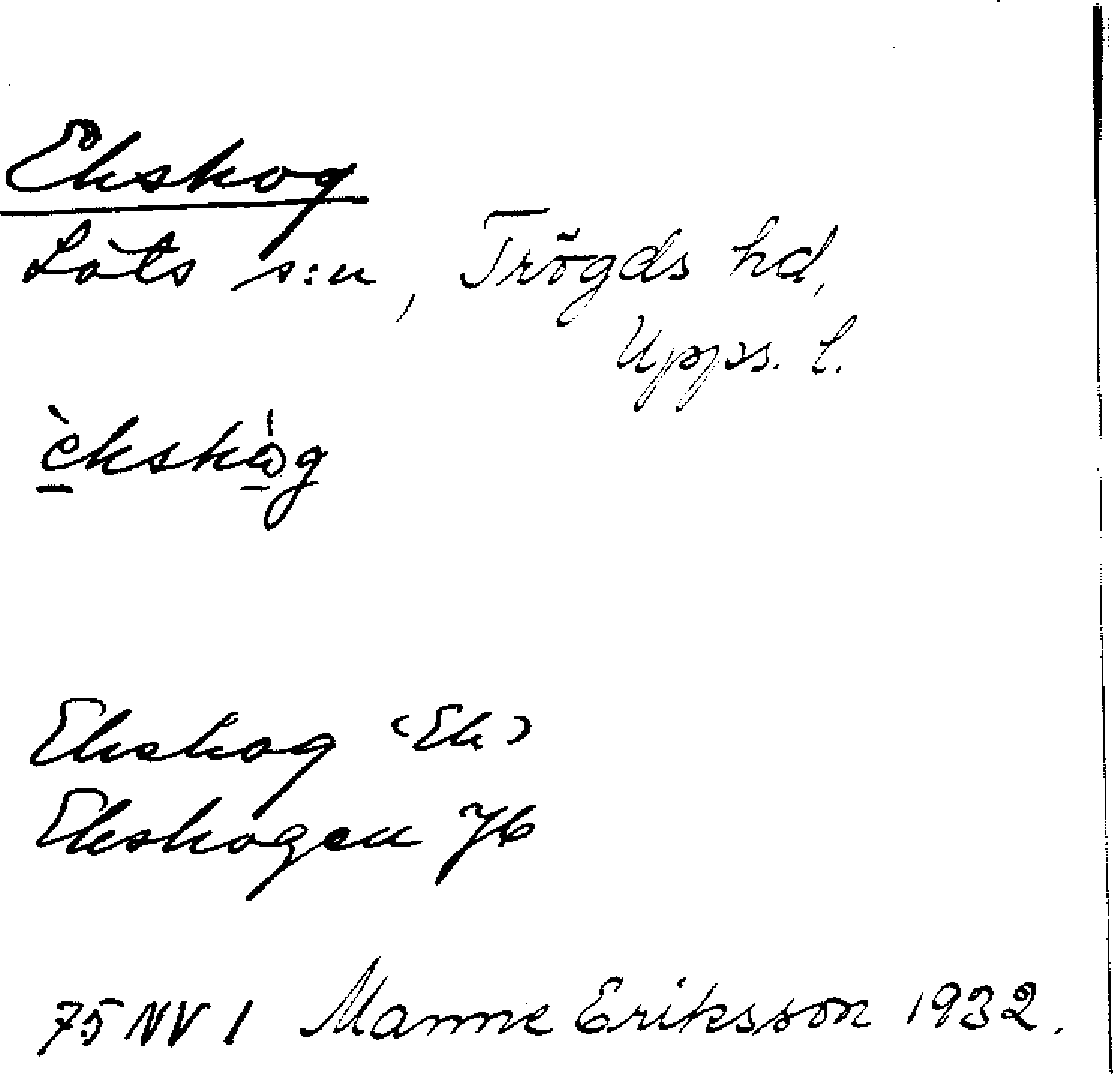 Ekskog
Löts s:n, Trögds hd,
Upps. l.
èkskòg
Ekskog (Ek)
Ekskogen Jb
75 NV 1 Manne Eriksson 1932.